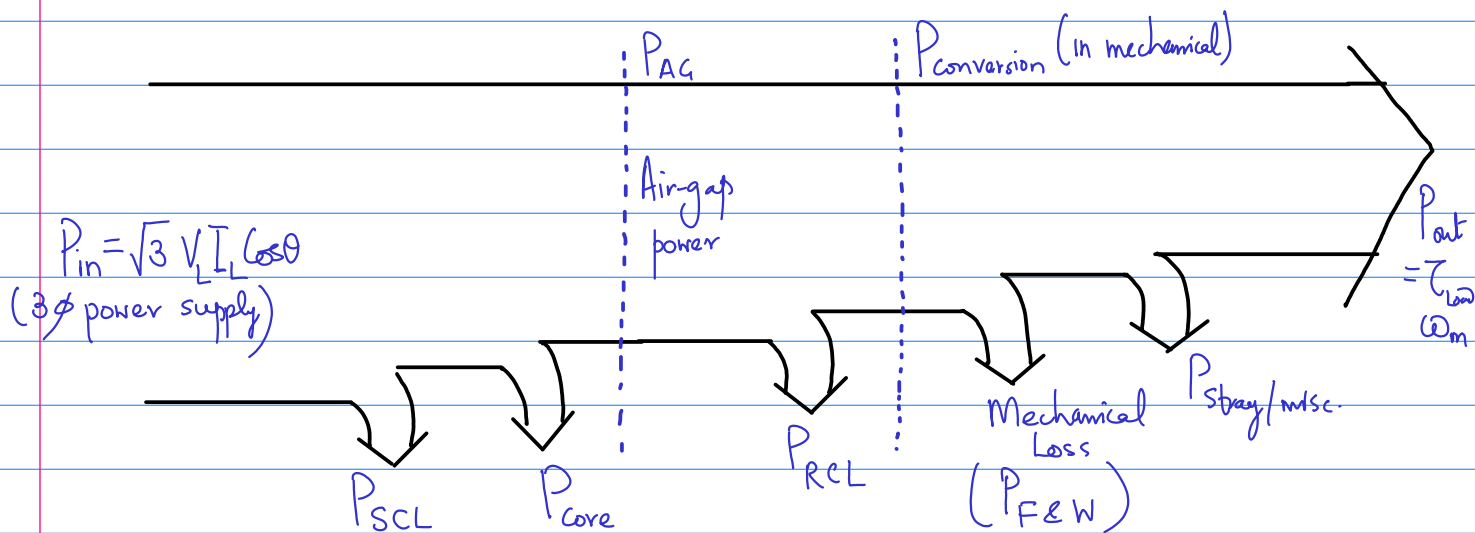 P_AG
P_Conversion (in mechanical)
Air-gap
power
P_in = √3 V_L I_L Cosθ
(3φ power supply)
P_out
= τ_Load
ω_m
P_SCL
P_Core
P_RCL
Mechanical
Loss
(P_F&W)
P_Stray/misc.